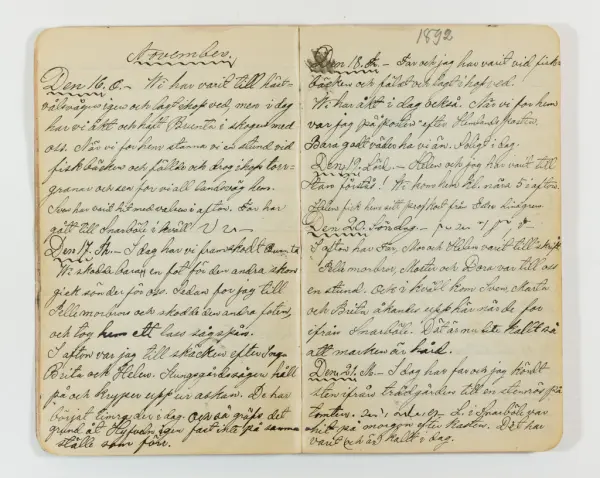 November.
Den 16. O. – Vi har varit till
igen och lagt ihop ved, men i dag
har vi åkt och haft Brunte i skogen med
oss. När vi for hem stanna vi en stund vid
fiskbäcken och fällde och drog ihop torr-
granar och sen for vi all landsväg hem.
har varit hit med veden i afton. Far har
gått till Snarböle i kväll
Den 17. Th. – I dag har vi framskodt Brunte
Vi skodde bara en fot för den andra skon
gick sönder för oss. Sedan for jag till
Pellemorbrors och skodde den andra foten,
och tog hem ett lass sågspån.
I afton var jag till efter
Brita och Helen. håll
på och kryper upp ur askan. De har
börjat i dag. Och så gräfs det
grund åt igen fast inte på samma
ställe som förr.
1892
Den 18. Fr. – Far och jag har varit vid fisk-
bäcken och fäldt och lagt ihop ved.
Vi har åkt i dag också. När vi for hem
var jag på posten efter Posten.
Bara godt väder ha vi än. Soligt i dag.
Den 19. Lörd. – Helen och jag har varit till
förstås! Vi kom hem kl. nära 5 i afton.
Helen fick hem sitt från
Den 20. Söndag. –
I afton har Far, Mor och Helen varit till
Pellemorbror, Moster och Dora var till oss
en stund. Och i kväll kom Sven, Marta
och Brita åkandes upp här när de for
ifrån Snarböle. Det är nu lite kallt så
att marken är hård.
Den 21. M. – I dag har far och jag kördt
sten ifrån trädgården till en stenrös på
tomten. L. i Snarböle var
hit på morgon efter Kasten. Det har
varit (och är) kallt i dag.